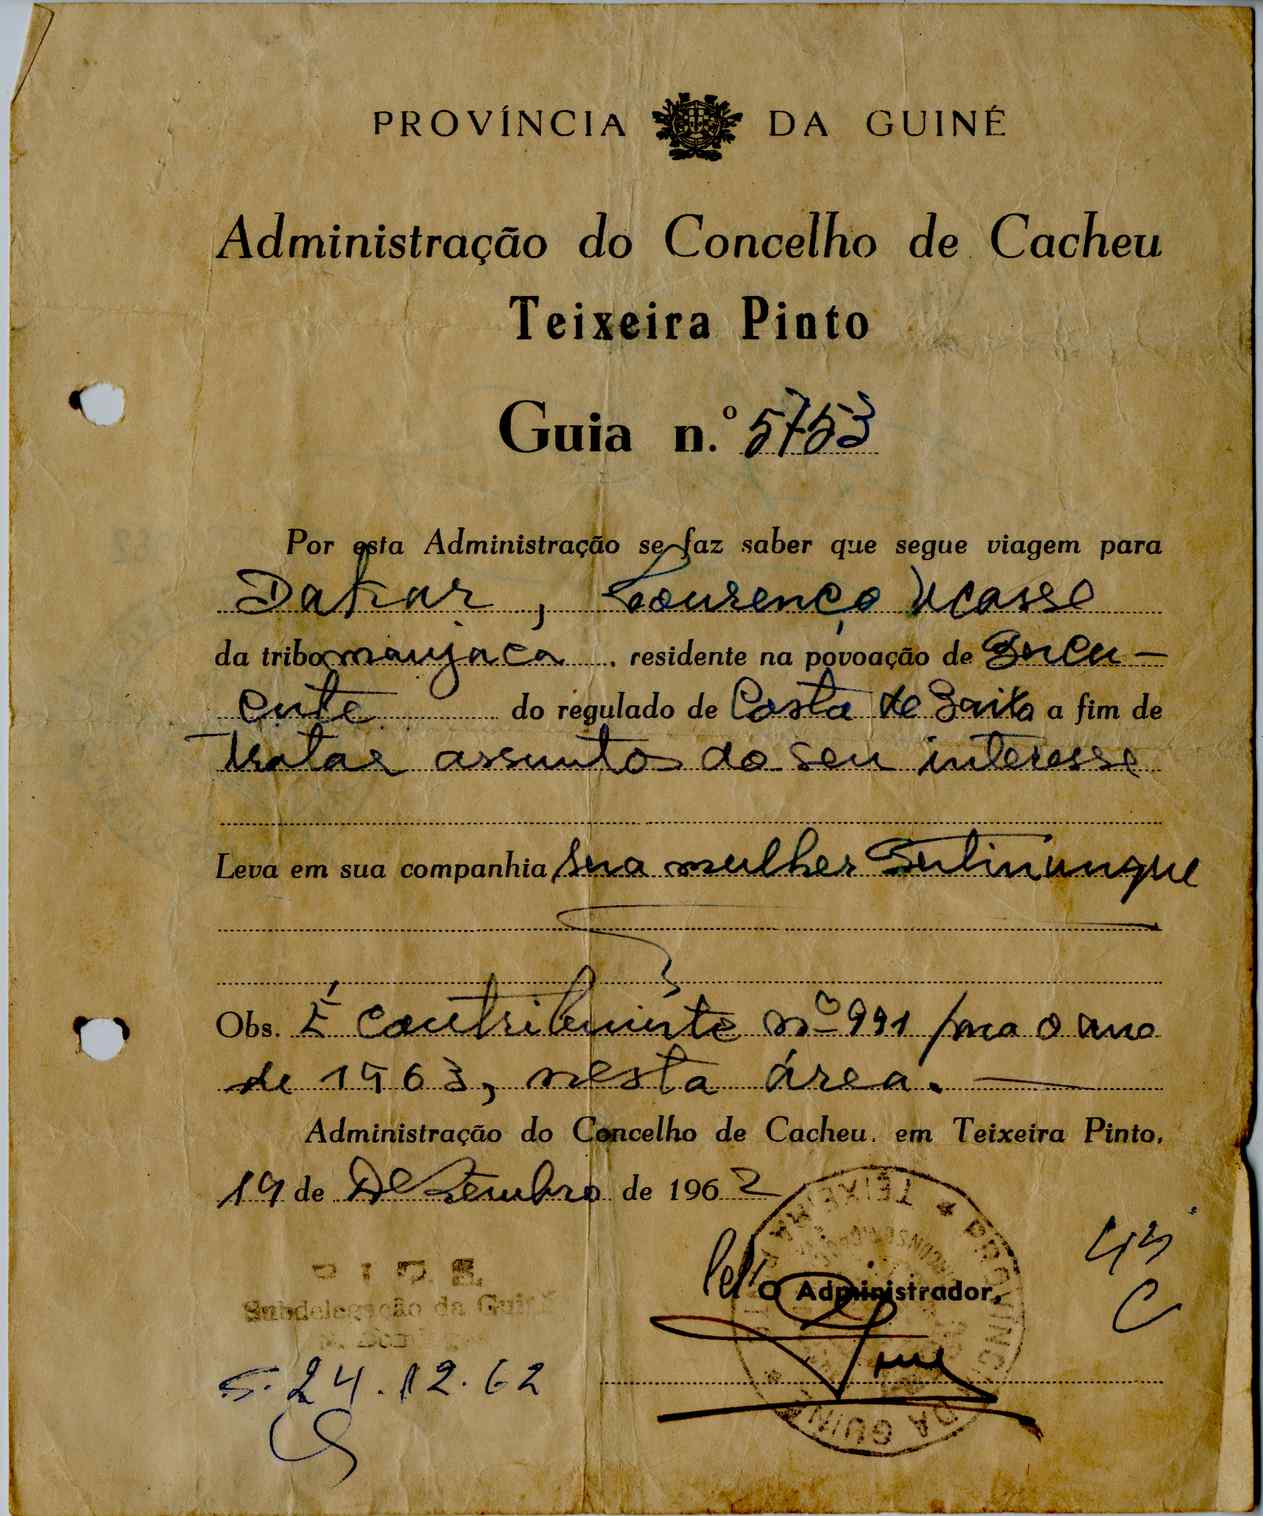 PROVÍNCIA DA GUINÉ
Administração do Concelho de Cacheu
Teixeira Pinto
Guia n.º 5753
Por esta Administração se faz saber que segue viagem para
Dakar, Lourenço Ucasse
da tribo manjaca, residente na povoação de Bucu-
ente do regulado de Costa de Baixo a fim de
tratar assunto do seu interesse
Leva em sua companhia sua mulher
Obs. É contribuinte nº 991 para o ano
de 1963, nesta área.
Administração do Concelho de Cacheu, em Teixeira Pinto,
19 de Dezembro de 1962
Pel' O Administrador,
P I D E
Subdelegação da Guiné
S. 24.12.62
PROVÍNCIA DA GUINÉ
TEIXEIRA